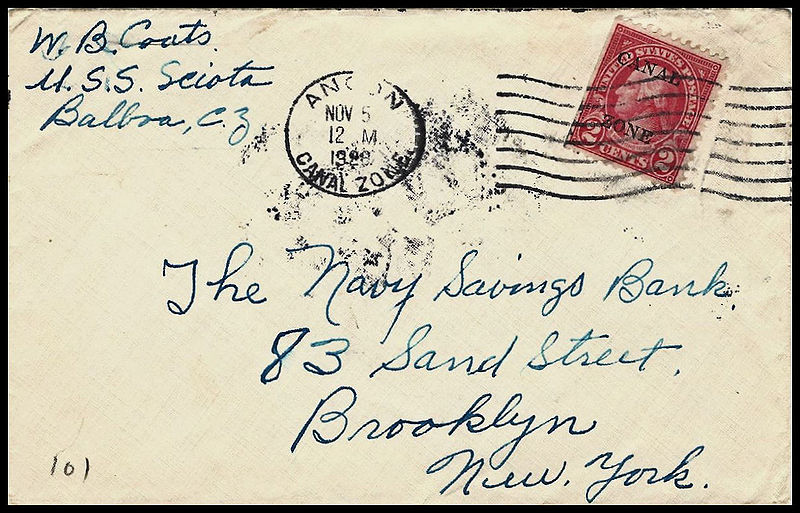 W. B. Coats.
U.S.S. Sciota
Balboa, C Z
ANCON
NOV 5
12 M
CANAL ZONE
UNITED STATES
CANAL
ZONE
2 CENTS 2
The Navy Savings Bank.
83 Sand Street.
Brooklyn
New. York.
101